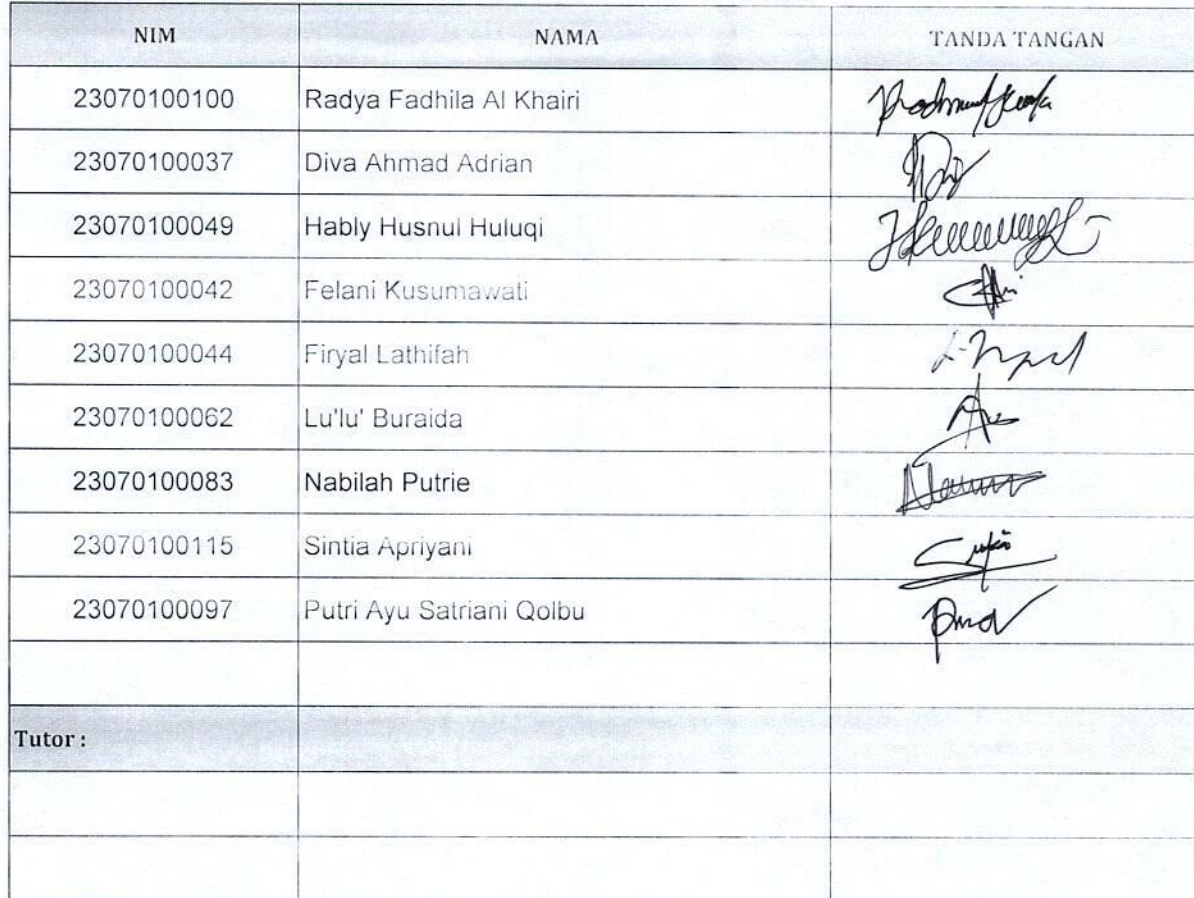 NIM NAMA TANDA TANGAN
23070100100 Radya Fadhila Al Khairi
23070100037 Diva Ahmad Adrian
23070100049 Hably Husnul Huluqi
23070100042 Felani Kusumawati
23070100044 Firyal Lathifah
23070100062 Lu'lu' Buraida
23070100083 Nabilah Putrie
23070100115 Sintia Apriyani
23070100097 Putri Ayu Satriani Qolbu
Tutor :